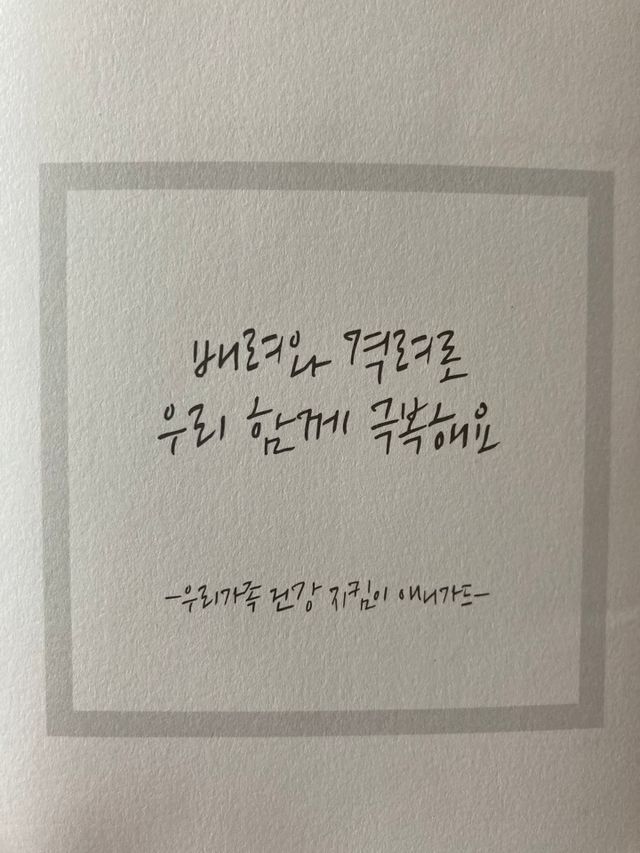 배려와 격려로
우리 함께 극복해요
-우리가족 건강 지킴이 애니가드-